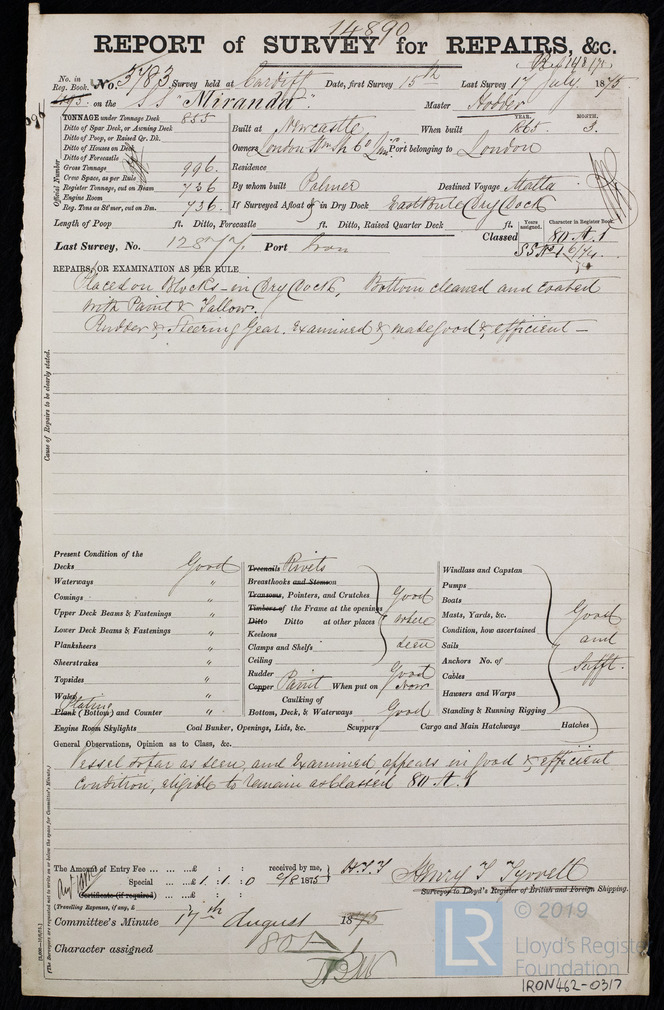 14890
REPORT of SURVEY for REPAIRS, &c.
No. in Reg. Book. No. 5783 Survey held at Cardiff Date, first Survey 15th Last Survey 17 July 1875
on the SS "Miranda". Master Hodder
TONNAGE under Tonnage Deck 855
Ditto of Spar Deck, or Awning Deck
Ditto of Poop, or Raised Qr. Dk.
Ditto of Houses on Deck
Ditto of Forecastle
Gross Tonnage 996.
Crew Space, as per Rule
Register Tonnage, cut on Beam 736
Engine Room
Reg. Tons as St'mer, cut on Bm. 736.
Official Number
YEAR. MONTH.
Built at Newcastle When built 1865. 3.
Owners Port belonging to London
Residence
By whom built Palmer Destined Voyage Malta
If Surveyed Afloat or in Dry Dock East Bute Dry Dock
Length of Poop ft. Ditto, Forecastle ft. Ditto, Raised Quarter Deck ft.
Years assigned. Character in Register Book
Classed 80 A.1
SS No 1 6/74
Last Survey, No. 12877 Port Iron
REPAIRS, OR EXAMINATION AS PER RULE
Placed on Blocks in Dry Dock, Bottom cleaned and coated
with Paint & Tallow.
Rudder & Steering Gear. examined & made good & efficient –
Cause of Repairs to be clearly stated.
Present Condition of the
Decks Good
Waterways "
Comings "
Upper Deck Beams & Fastenings "
Lower Deck Beams & Fastenings "
Planksheers "
Sheerstrakes "
Topsides "
Wales "
Plating
Plank (Bottom) and Counter "
Treenails Rivets
Breasthooks and Stemson
Transoms, Pointers, and Crutches Good
Timbers of the Frame at the openings where
Ditto Ditto at other places
Keelsons seen
Clamps and Shelfs
Ceiling
Rudder Good
Copper Paint When put on Now
Caulking of
Bottom, Deck, & Waterways Good
Windlass and Capstan
Pumps
Boats
Masts, Yards, &c. Good
Condition, how ascertained and
Sails
Anchors No. of Sufft.
Cables
Hawsers and Warps
Standing & Running Rigging
Engine Room Skylights Coal Bunker, Openings, Lids, &c. Scuppers Cargo and Main Hatchways Hatches
General Observations, Opinion as to Class, &c.
Vessel so far as seen, and examined appears in good & efficient
condition, eligible to remain as classed 80 A.1
The Amount of Entry Fee ... ... ...£ : : received by me,
Special ... ...£ 1 : 1 : 0 2/8 1875 H.T.T
Certificate (if required) ...
(Travelling Expenses, if any, £
Henry T Tyrrell
Surveyor to Lloyd's Register of British and Foreign Shipping.
Committee's Minute 17th August 1875
Character assigned 80 A 1
© 2019
LR Lloyd's Register
Foundation
IRON462-0317